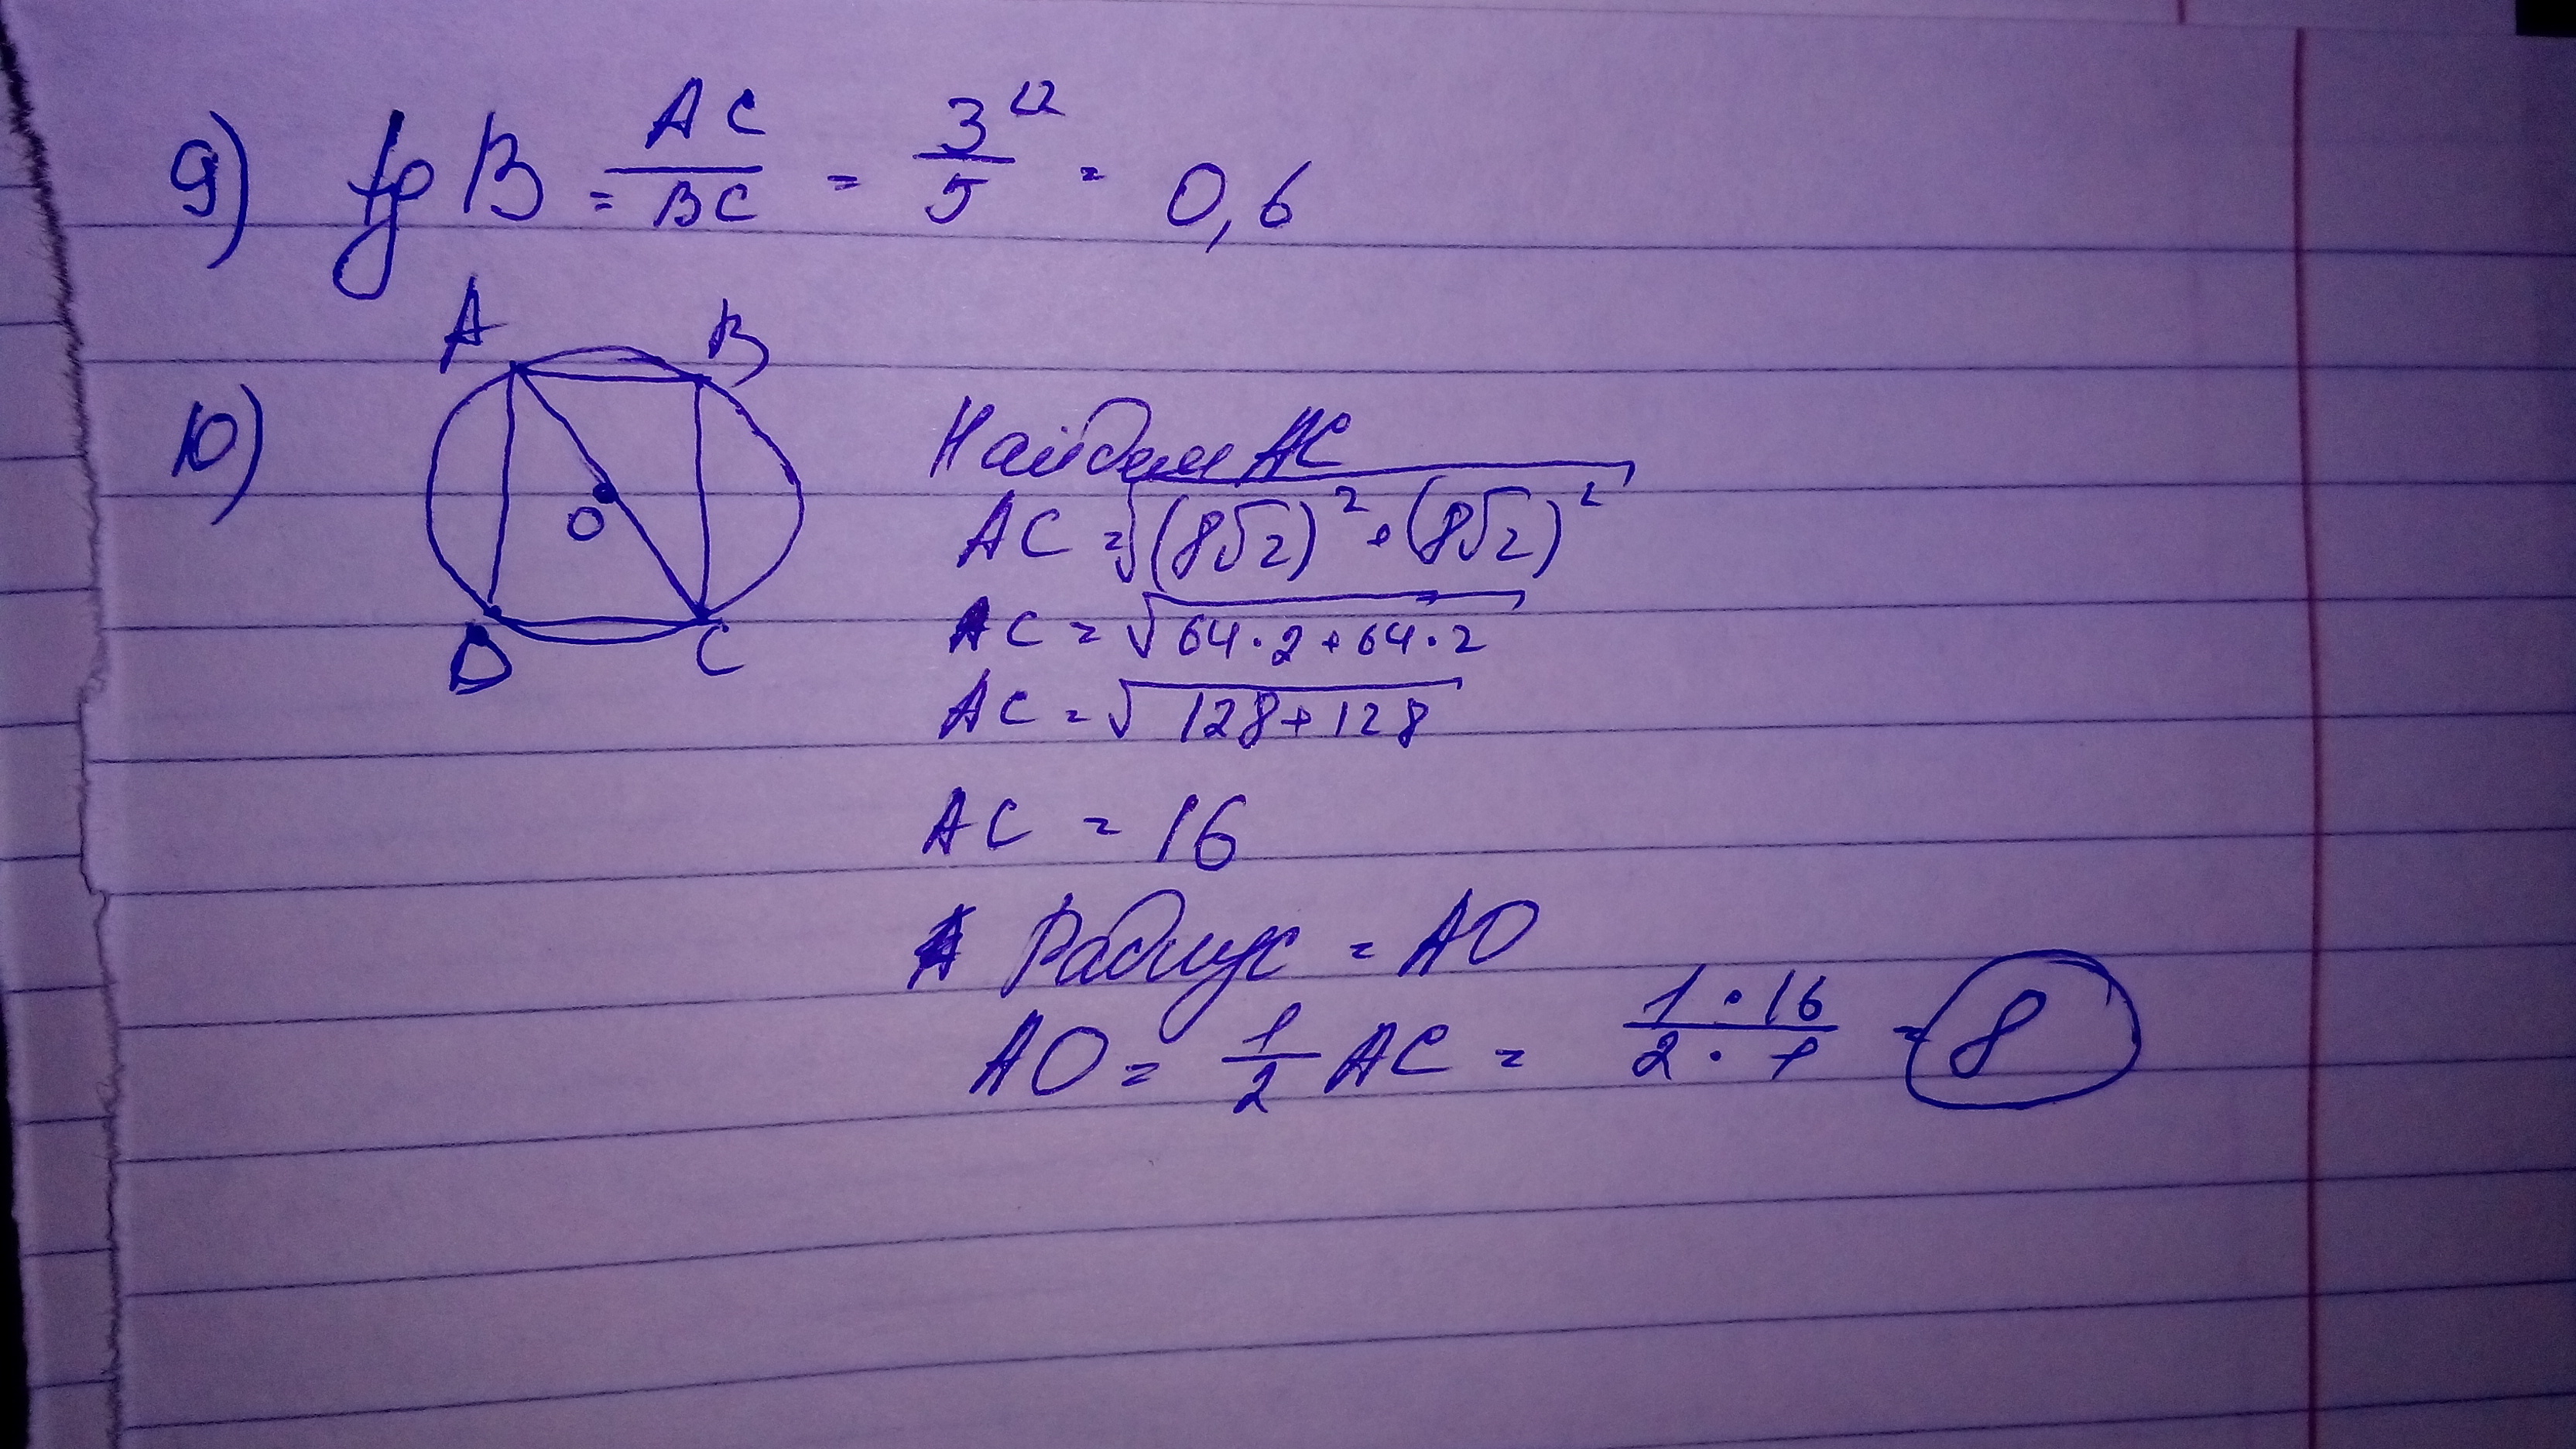 9) tg B = AC/BC = 3/5 = 0,6
10)
A B
O
D C
Найдем AC
AC = √((8√2)² + (8√2)²)
AC = √(64·2+64·2)
AC = √(128+128)
AC = 16
Радиус = AO
AO = 1/2 AC = (1·16)/(2·1) = 8